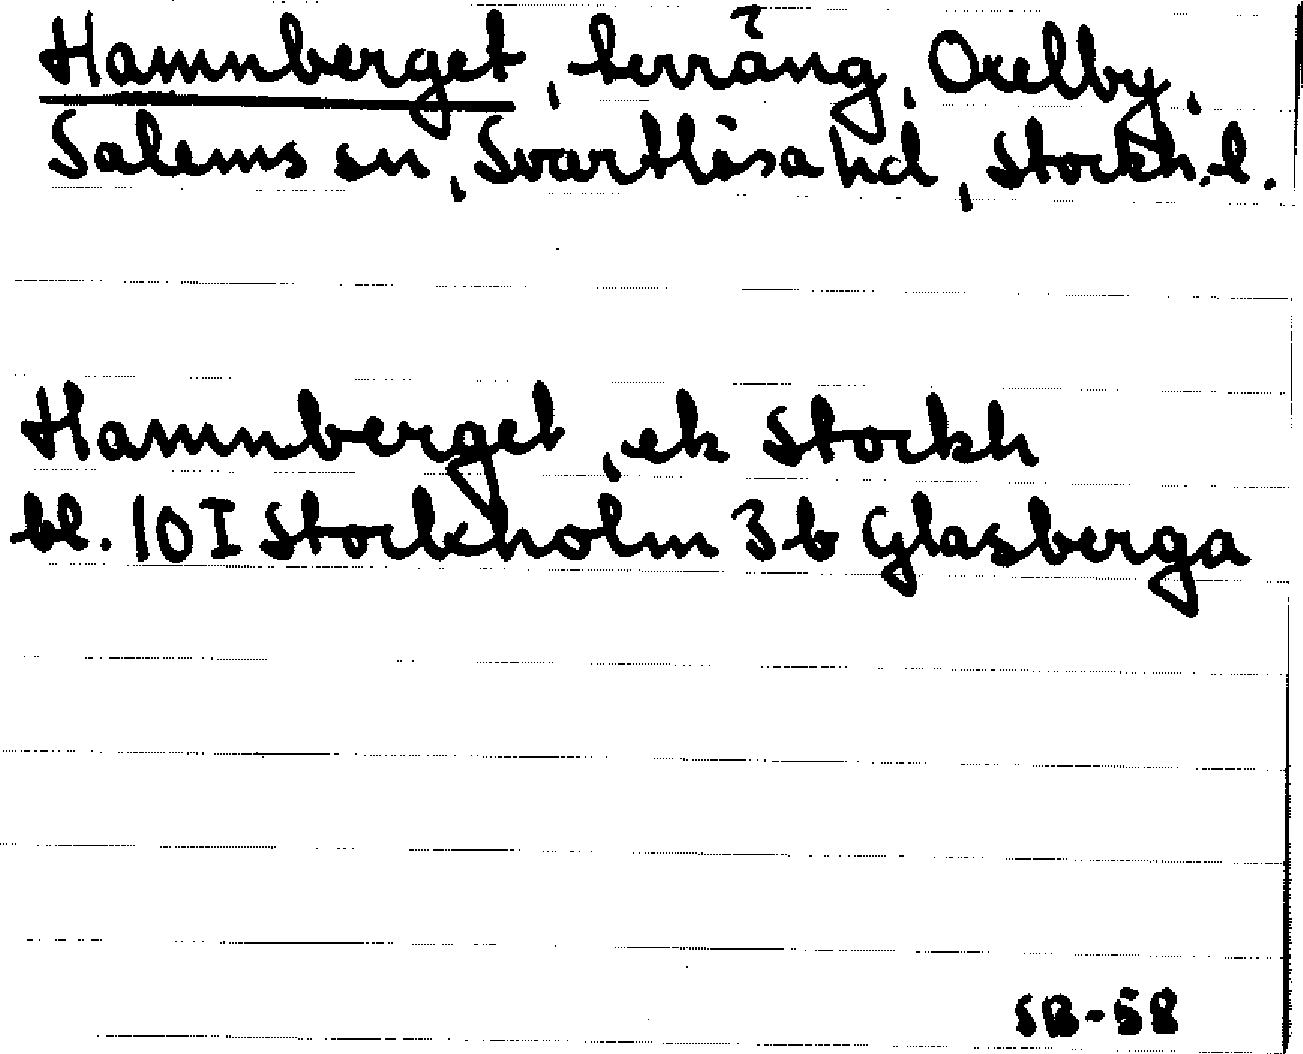 Hamnberget, terräng, Oxelby,
Salems sn, Svartlösa hd, Stockh.l.
Hamnberget, ek Stockh
bl. 10 I Stockholm 3b Glasberga
SB-58